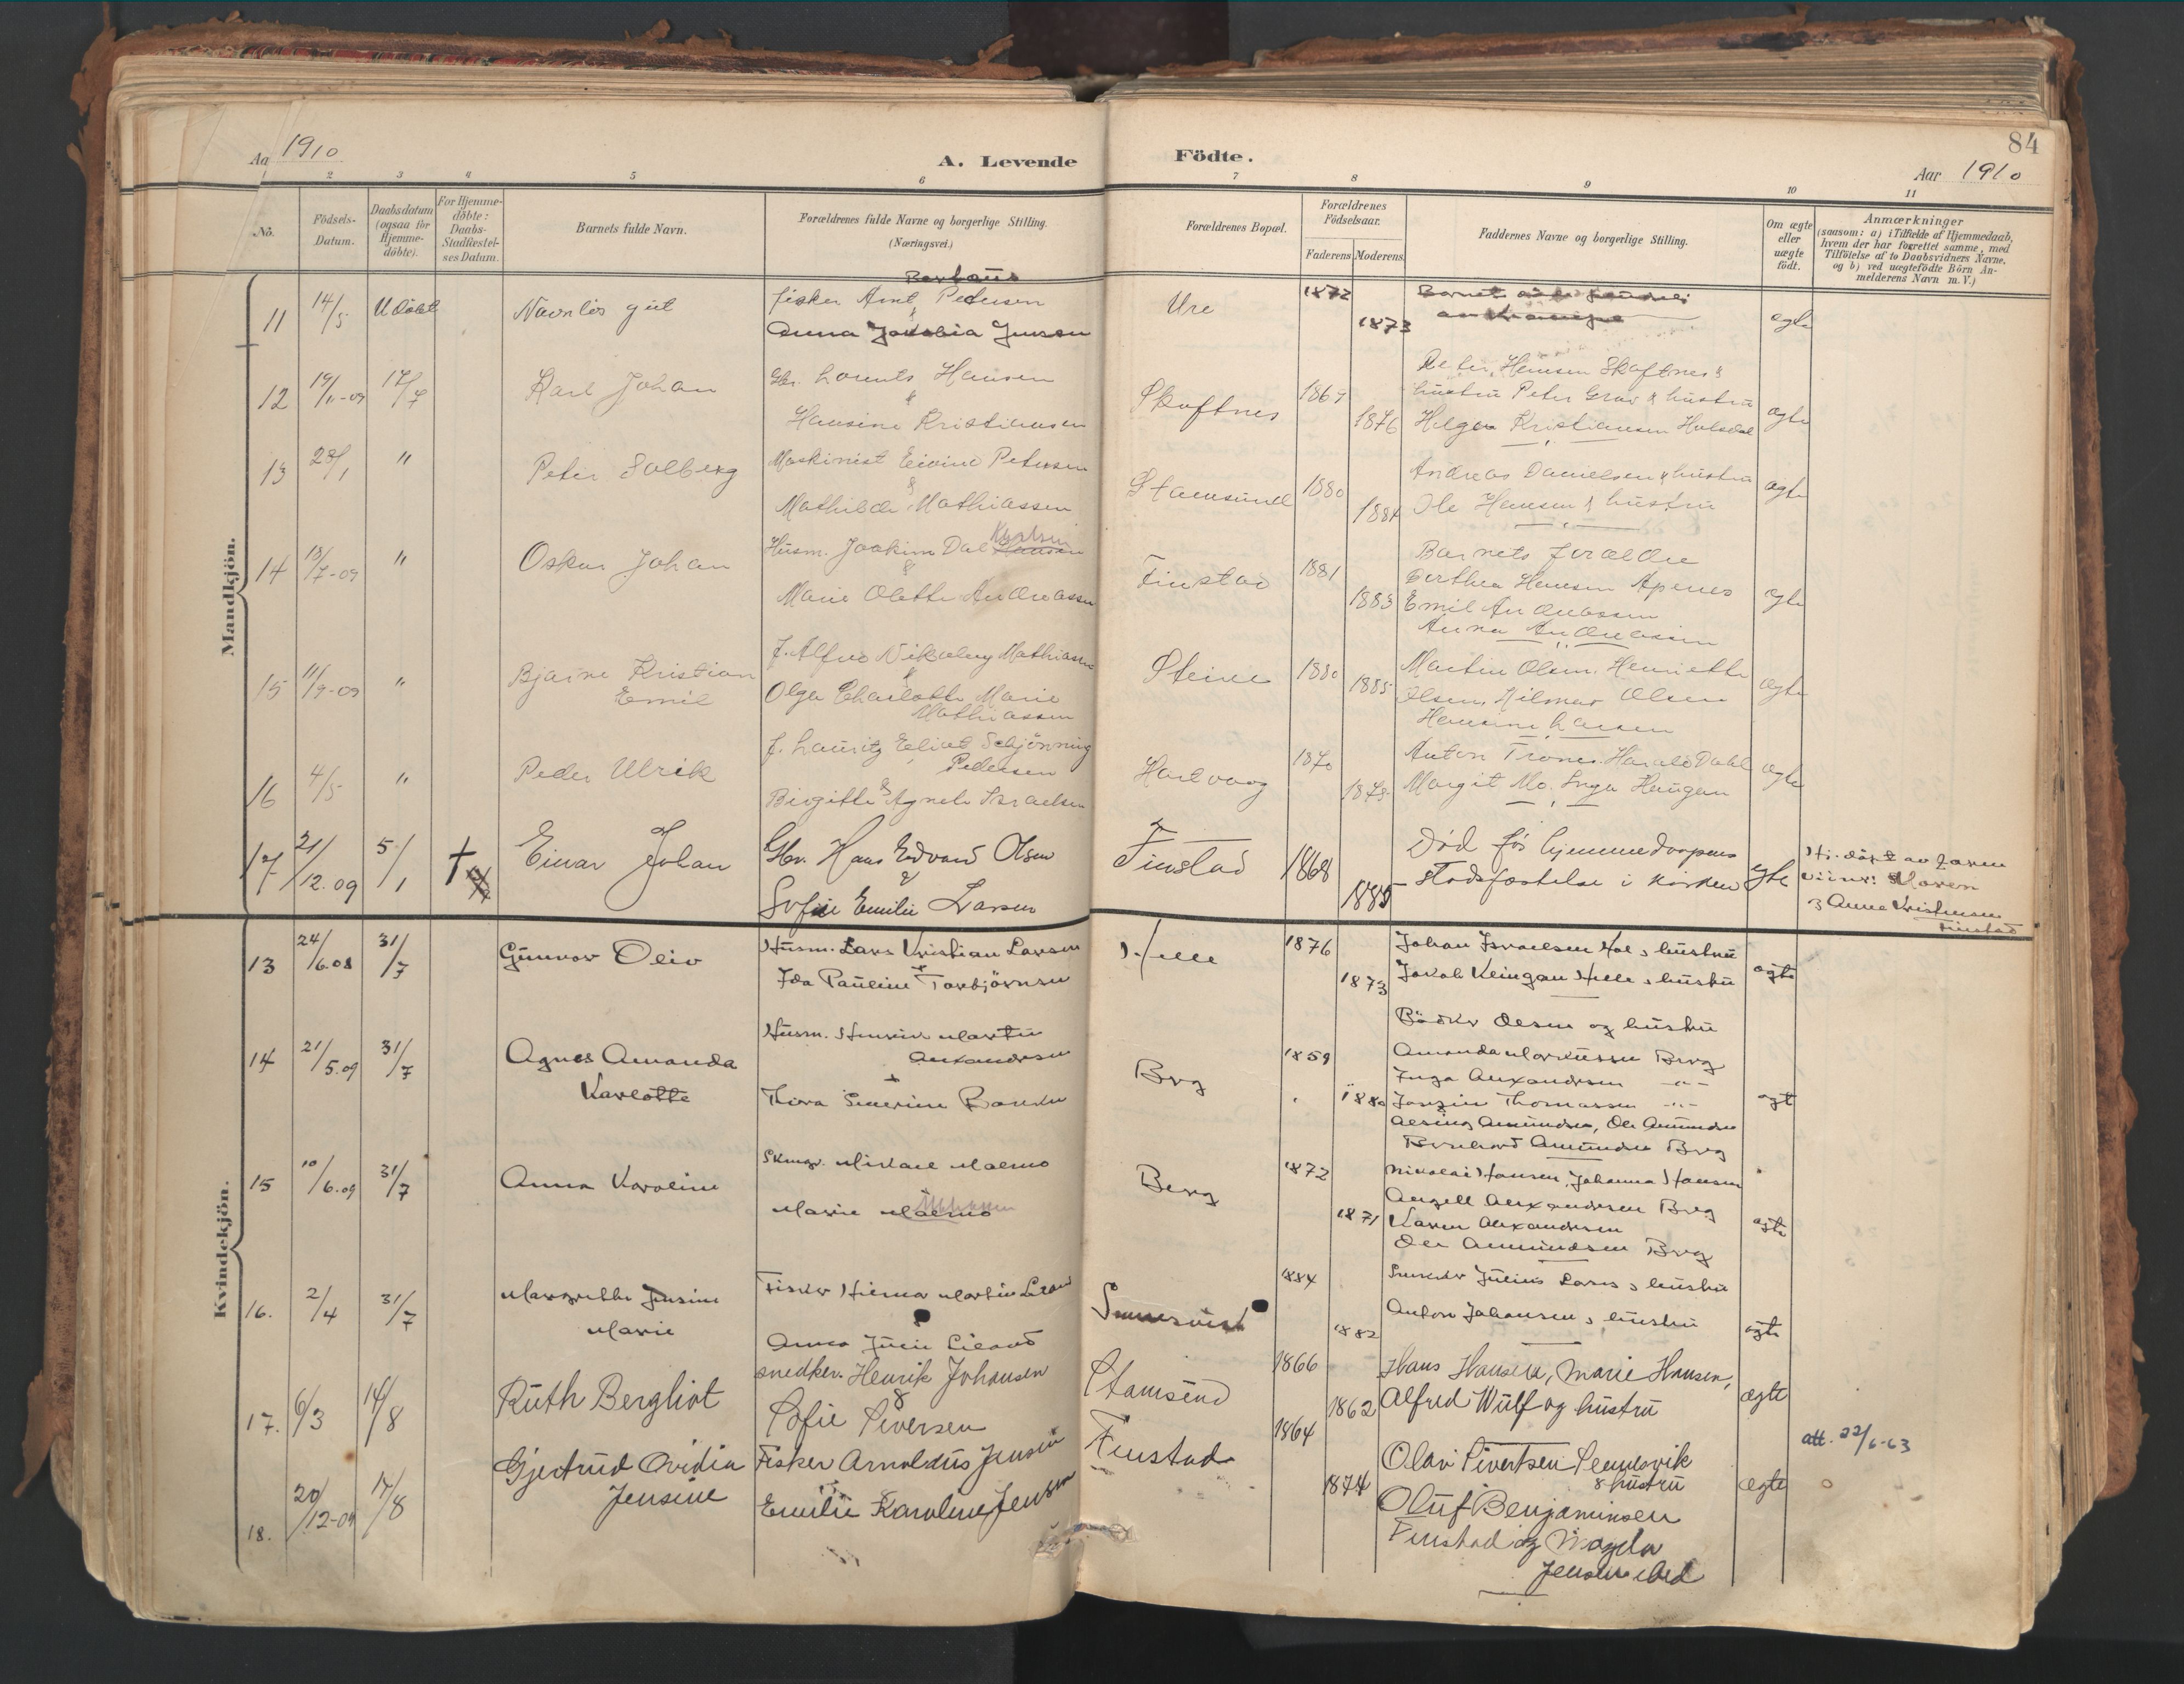 Aa 1910
A. Levende
1 2 3 4 5 6
No.
Födsels-Datum.
Daabsdatum (ogsaa for Hjemme-döbte).
For Hjemme-döbte: Daabs-Stadfæstel-ses Datum.
Barnets fulde Navn.
Forældrenes fulde Navne og borgerlige Stilling.
(Næringsvei.)
Födte.
84
Aar 1910
7 8 9 10 11
Forældrenes Bopæl.
Forældrenes Födselsaar.
Faderens Moderens.
Faddernes Navne og borgerlige Stilling.
Om ægte eller uægte födt.
Anmærkninger
(saasom: a) i Tilfælde af Hjemmedaab,
hvem der har forrettet samme, med
Tilföielse af to Daabsvidners Navne,
og b) ved uægtefödte Börn An-
melderens Navn m. V.)
Mandkjön.
11 14/5 Udöbt Navnlös gut fisker Arnt Pedersen Ure 1872
&
Anna Jakobia Jensen 1873 egte
12 19/11-09 17/7 Karl Johan Gbr. Lorents Hansen Skaftnes 1869 Peter Hansen Skaftnes &
&
hustru Peter Grav & hustru
Hansine Kristiansen 1876 Helga Kristiansen Holsdal ægte
13 23/1 " Peter Solberg Maskinist Eivind Petersen Stamsund 1880 Andreas Danielsen & hustru
&
Mathilde Mathiassen 1884 Ole Hansen & hustru ægte
14 18/7-09 " Oskar Johan Husm. Joakim Dal Hansen Finstad 1881 Barnets forældre
&
Dorthea Hansen Apenes
Marie Olette Andreassen 1883 Emil Andreassen ægte
Anna Andreassen
15 11/9-09 " Bjarne Kristian Emil f. Alfred Nikolay Mathiasen Steine 1880 Martin Olsen. Henriette
&
Olga Charlotte Marie Mathiassen 1885 Olsen, Hilmar Olsen ægte
Hansine Larsen
16 4/5 " Peder Ulrik f. Lauritz Eeliat Schjönning Pedersen Hartvaag 1870 Anton Trones. Harald Dahl
&
Birgitte Agnete Israelsen 1873 Margit Mo. Inga Haugan ægte
17 21/12.09 5/1 † Einar Johan Gbr. Hans Edvard Olsen Finstad 1868 Död för hjemmedaapens
&
Sofie Emilie Larsen 1885 stadfæstelse i kirken egte
Hj. döpt av faren
& Anna Kristensen
Finstad
Kvindekjön.
13 24/6.08 31/7 Gunvor Oliv Husm. Lars Kristian Larsen Helle 1876 Johan Israelsen Hol & hustru
Ida Pauline Torbjörnsen 1873 Jakob Klingan Helle & hustru ægte
14 21/5.09 31/7 Agnes Amanda Karlotte Husm. Henrik Martin Alexandersen Berg 1859 Bödker Olsen og hustru
Amanda Markussen Berg
Inga Alexandersen -"-
Thora Severine 1880 Jorgine Thomassen -"- ægt
Ole Amundsen
Bernhard Amundsen Berg
15 10/6.09 31/7 Anna Karoline Skrædr. Mikael Malmo Berg 1872 Nikolai Hansen, Johanna Hansen
Angell Alexandersen Berg
Marie Malmo 1871 Karen Alexandersen ægte
Ole Amundsen Berg
16. 2/4 31/7 Margrethe Jensine Marie Fisker Hilmar Martin Sennesvik 1884 Snekker Julius Larsen & hustru
Anna Julie 1882 Anton Johansen & hustru ægte
17. 6/3 14/8 Ruth Bergliot snedker. Henrik Johansen Stamsund 1866 Hans Hansen, Marie Hansen,
&
Sofie Siversen 1862 Alfred Wulf og hustru ægte
18. 20/12-09 14/8 Gjertrud Ovidia Jensine Fisker Arnoldus Jensen Finstad 1864 Olav Sivertsen Sennesvik
& hustru
Emilie Karoline Jensen 1874 Oluf Benjaminsen ægte
Finstad og Magda
Jensen ibid
att. 22/6-63